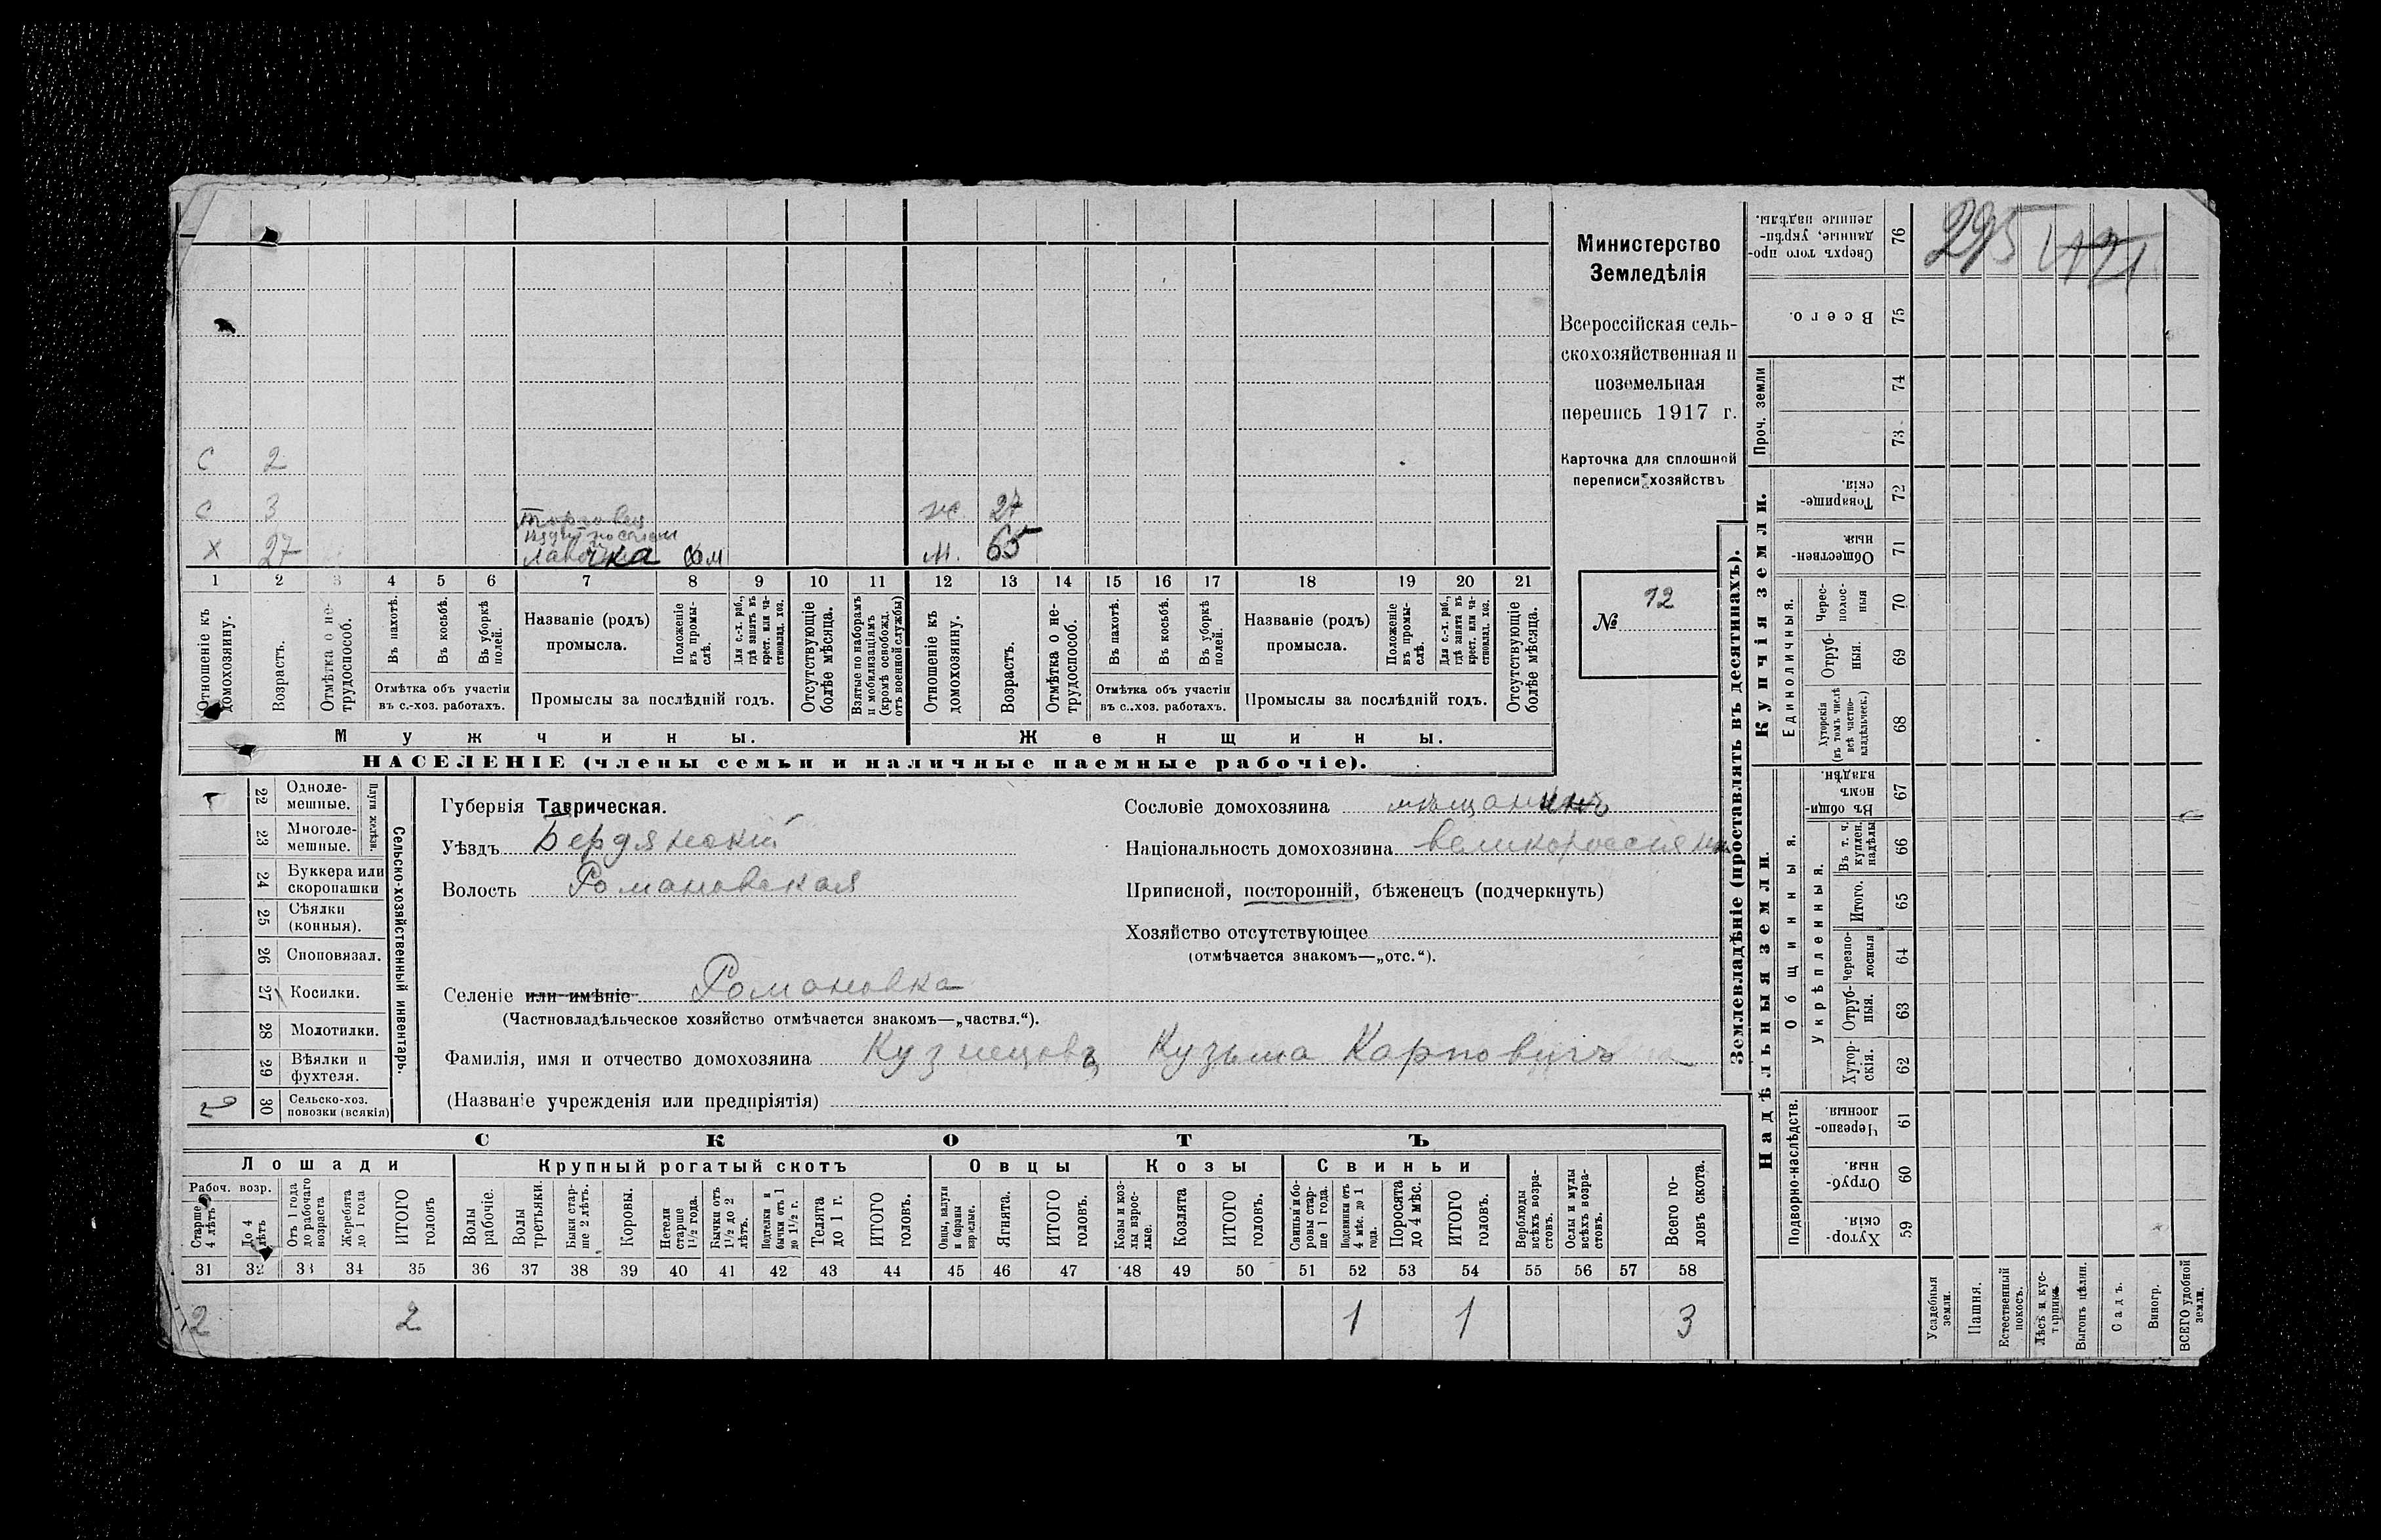 295
Министерство
Земледѣлія
Всероссійская сель-
скохозяйственная и
поземельная
перепись 1917 г.
Карточка для сплошной
переписи хозяйствъ
№ 12
С 2
С 3 ж 27
Торговля
Х 27 лавочка м. 65
1 2 3 4 5 6 7 8 9 10 11 12 13 14 15 16 17 18 19 20 21
Отношеніе къ домохозяину.
Возрастъ.
Отмѣтка о не-трудоспособ.
Въ пахотѣ.
Въ косьбѣ.
Въ уборкѣ полей.
Отмѣтка объ участіи
въ с.-хоз. работахъ.
Названіе (родъ)
промысла.
Положеніе въ промы-слѣ.
Для с.-х. раб., гдѣ занятъ въ крест. или ча-стновлад. хоз.
Промыслы за послѣдній годъ.
Отсутствующіе болѣе мѣсяца.
Взятые по наборамъ и мобилизаціямъ (кромѣ освобожд. отъ военной службы)
Отношеніе къ домохозяину.
Возрастъ.
Отмѣтка о не-трудоспособ.
Въ пахотѣ.
Въ косьбѣ.
Въ уборкѣ полей.
Отмѣтка объ участіи
въ с..хоз. работахъ.
Названіе (родъ)
промысла.
Положеніе въ промы-слѣ.
Для с.-х. раб., гдѣ занята въ крест. или ча-стновлад. хоз.
Промыслы за послѣдній годъ.
Отсутствующіе болѣе мѣсяца.
Мужчины. Женщины.
НАСЕЛЕНІЕ (члены семьи и наличные наемные рабочіе).
22 Одноле-мешные.
23 Многоле-мешные.
Плуги желѣзн.
24 Буккера или скоропашки
25 Сѣялки (конныя).
26 Сноповязал.
27 Косилки.
28 Молотилки.
29 Вѣялки и фухтеля.
30 Сельско-хоз. повозки (всякія)
Сельско-хозяйственный инвентарь.
Губернія Таврическая.
Уѣздъ Бердянскій
Волость Романовская
Селеніе или имѣніе Романовка
(Частновладѣльческое хозяйство отмѣчается знакомъ—„частвл.“).
Фамилія, имя и отчество домохозяина Кузнецовъ Кузьма Карповичъ
(Названіе учрежденія или предпріятія)
Сословіе домохозяина мѣщанинъ
Національность домохозяина
Приписной, посторонній, бѣженецъ (подчеркнуть)
Хозяйство отсутствующее
(отмѣчается знакомъ—„отс.“).
СКОТЪ
Лошади Крупный рогатый скотъ Овцы Козы Свиньи
Рабоч. возр.
Старше 4 лѣтъ
До 4 лѣтъ
Отъ 1 года до рабочаго возраста
Жеребята до 1 года
ИТОГО головъ
Волы рабочіе.
Волы третьяки.
Быки стар-ше 2 лѣтъ.
Коровы.
Нетели старше 1 1/2 года.
Бычки отъ 1 1/2 до 2 лѣтъ.
Подтелки и бычки отъ 1 до 1 1/2 г.
Телята до 1 г.
ИТОГО головъ.
Овцы, валухи и бараны взрослые.
Ягнята.
ИТОГО головъ.
Козы и коз-лы взрос-лые.
Козлята
ИТОГО головъ.
Свиньи и бо-ровы стар-ше 1 года.
Подсвинки отъ 4 мѣс. до 1 года.
Поросята до 4 мѣс.
ИТОГО головъ.
Верблюды всѣхъ возра-стовъ.
Ослы и мулы всѣхъ возра-стовъ.
Всего го-ловъ скота.
31 32 33 34 35 36 37 38 39 40 41 42 43 44 45 46 47 48 49 50 51 52 53 54 55 56 57 58
2 2 1 1 3
Землевладѣніе (проставлять въ десятинахъ).
Надѣльныя земли. Купчія земли. Проч. земли
Подворно-наслѣдств.
Общинныя.
Укрѣпленныя.
Единоличныя.
Хутор-скія. 59
Отруб-ныя. 60
Черезпо-лосныя. 61
Хутор-скія. 62
Отруб-ныя. 63
Черезпо-лосныя 64
Итого. 65
Въ т. ч. куплен. надѣлы 66
Въ общи-номъ владѣн. 67
Хуторскія (въ томъ числѣ всѣ частно-владѣльческ.) 68
Отруб-ныя. 69
Черес-полос-ныя 70
Обществен-ныя 71
Товарище-скія. 72
73
74
Всего. 75
Сверхъ того про-данные, укрѣп-ленные надѣлы. 76
Усадебныя земли.
Пашня.
Естественный покосъ.
Лѣсъ и кус-тарникъ
Выгонъ цѣлин.
Садъ.
Виногр.
ВСЕГО удобной земли.